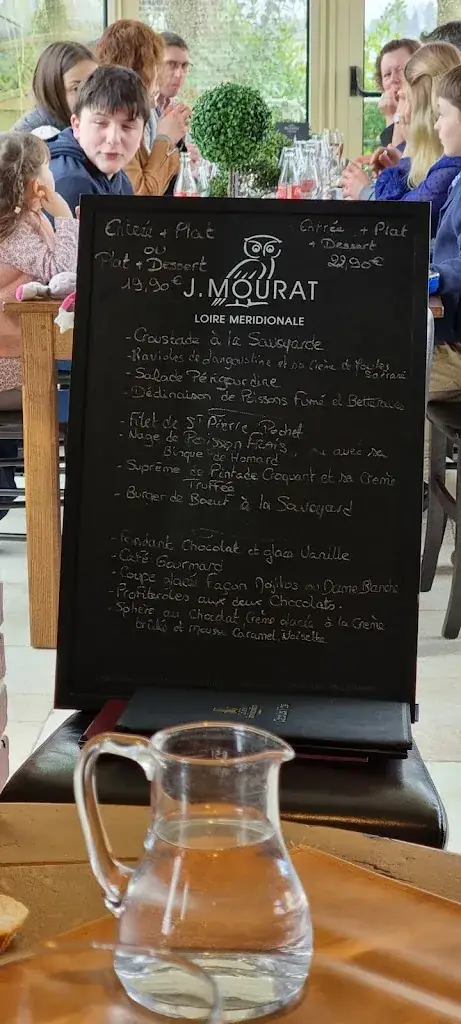 Entrée + Plat
ou
Plat + Dessert
19,90€
Entrée + Plat
+ Dessert
22,90€
J. MOURAT
LOIRE MERIDIONALE
- Croustade à la Savoyarde
- Ravioles de langoustine et sa Crème de
- Salade Périgourdine
- Déclinaison de Poissons Fumé et Betteraves
- Filet de St Pierre
- Nage de Poisson Frais avec sa
Bisque de Homard
- Suprême de Pintade Croquant et sa Crème
Truffée
- Burger de Boeuf à la Savoyard
- Fondant Chocolat et glace Vanille
- Café Gourmand
- Coupe glacée Façon ou Dame Blanche
- Profiteroles aux deux Chocolats.
- Sphère au Chocolat, Crème glacée à la Crème
brûlée et Mousse Caramel, Noisette